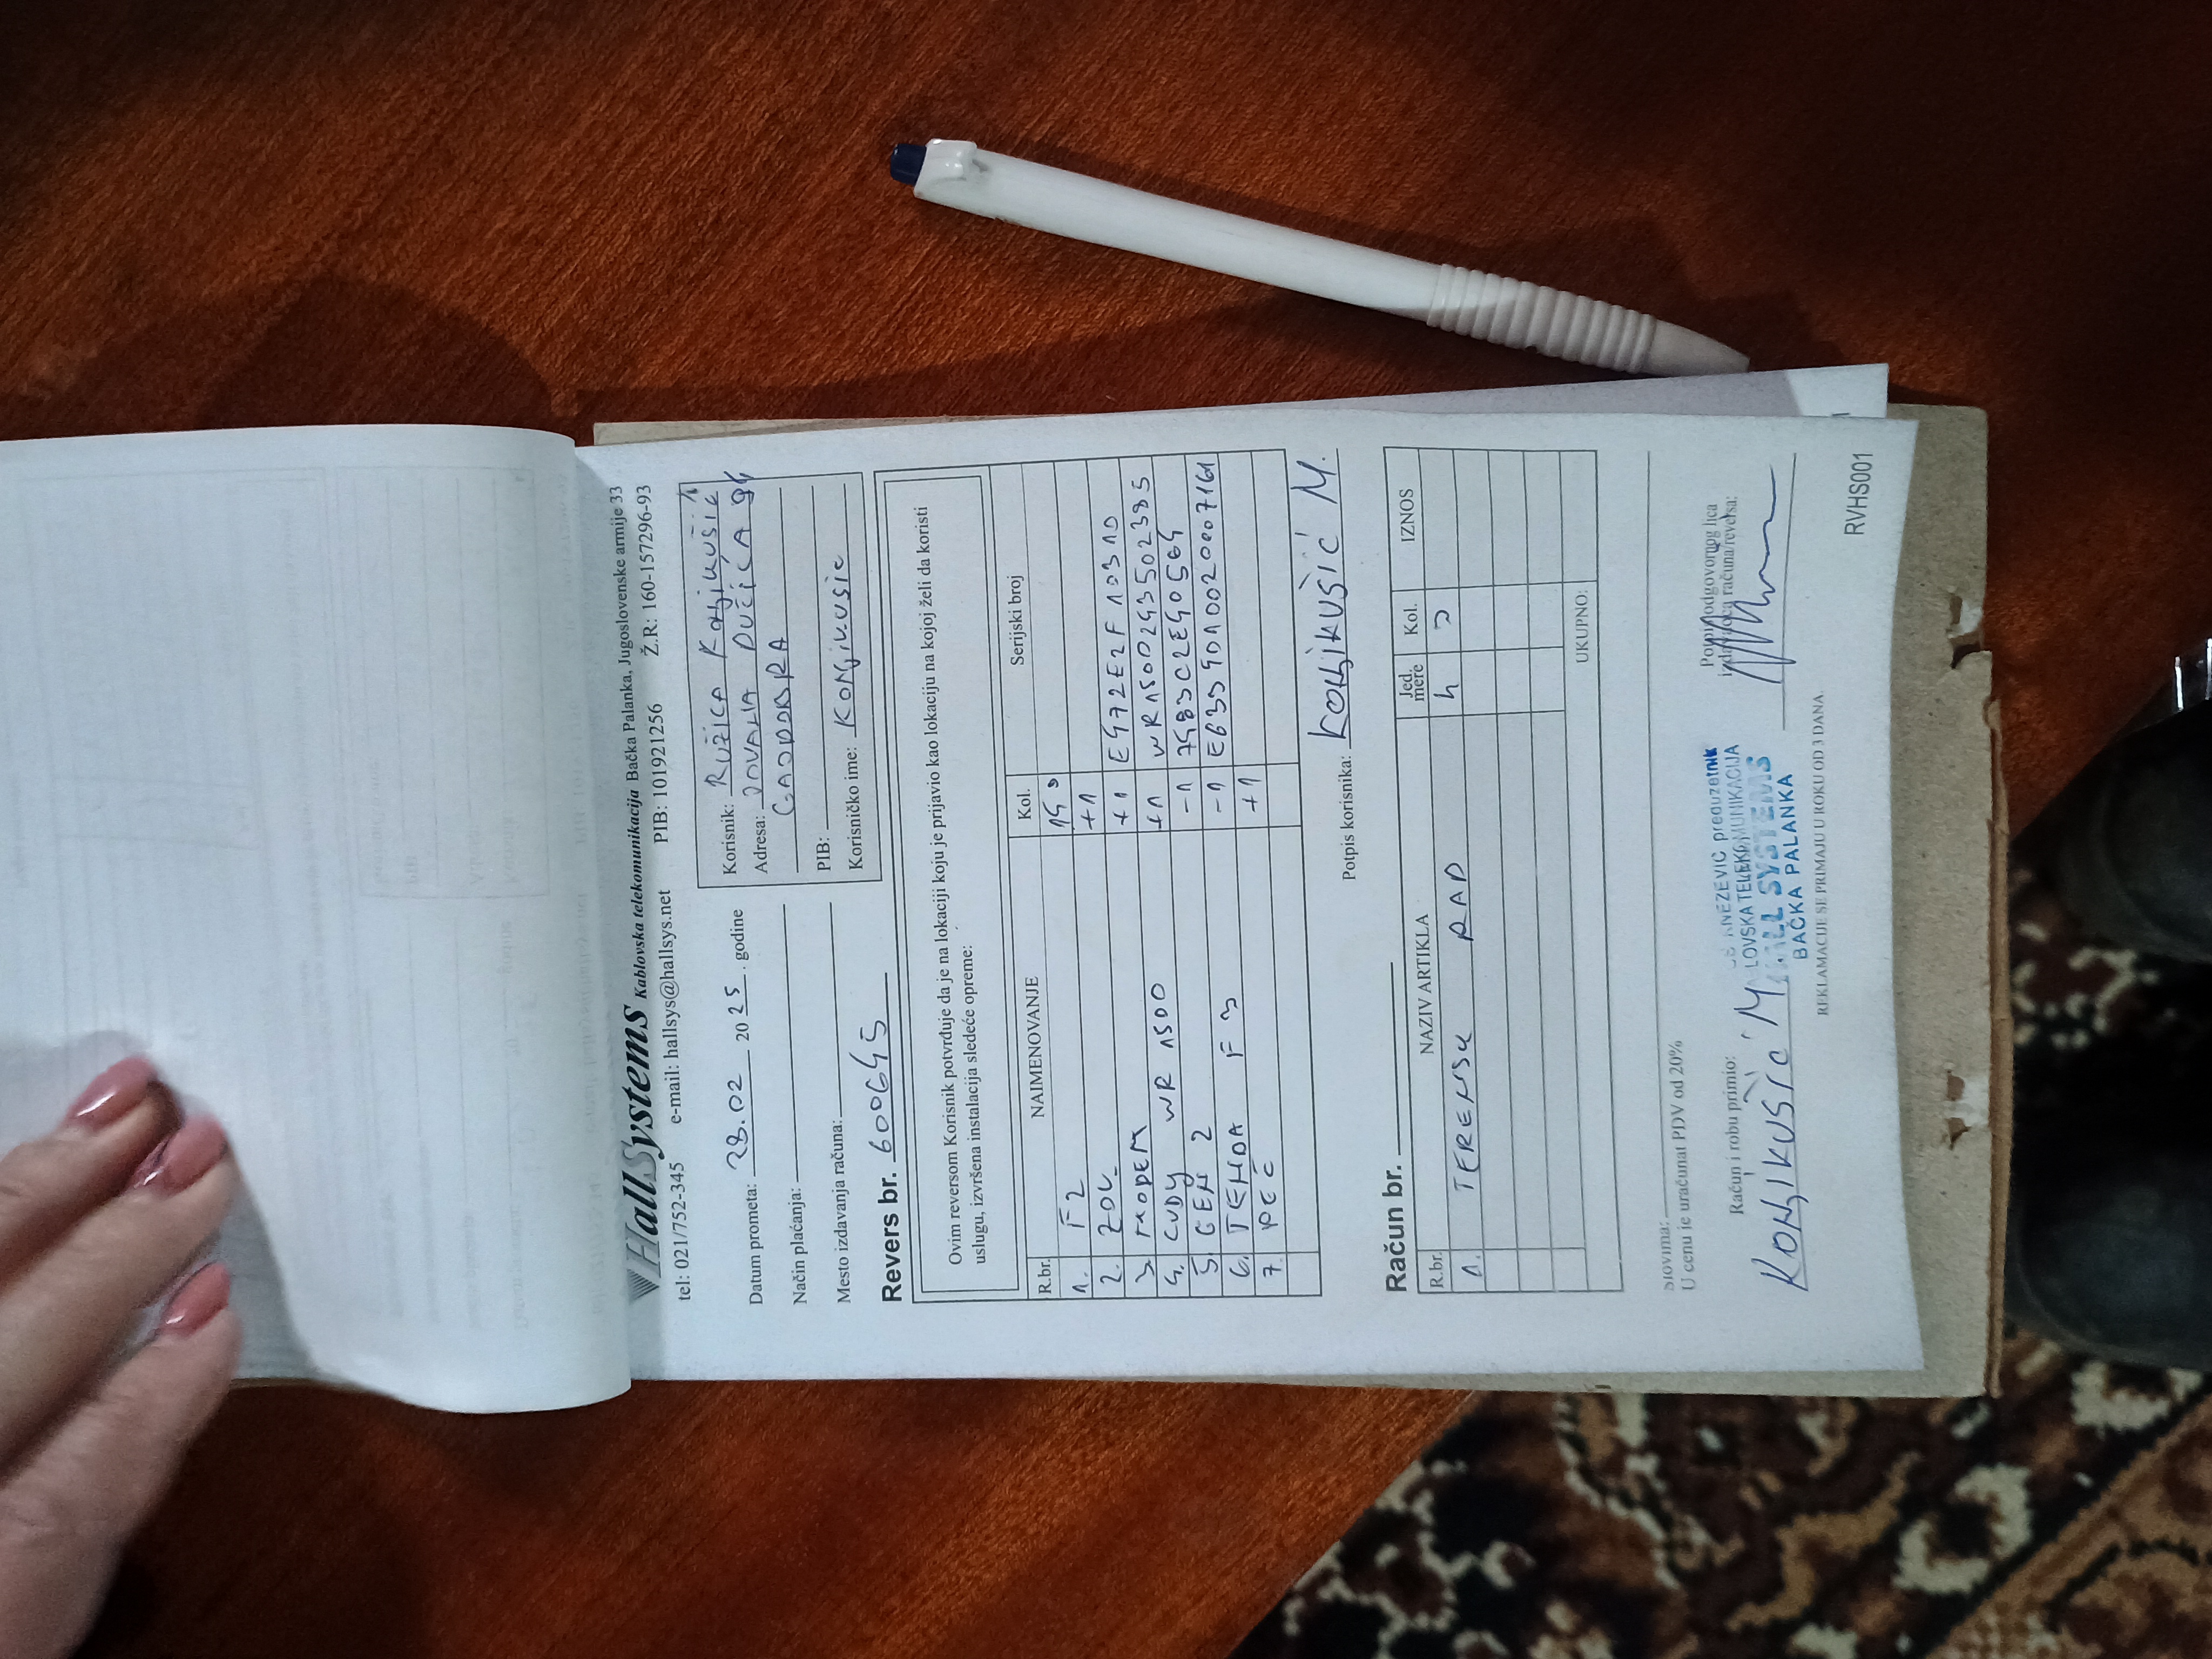 HallSystems Kablovska telekomunikacija Bačka Palanka, Jugoslovenske armije 33
tel: 021/752-345 e-mail: hallsys@hallsys.net PIB: 101921256 Ž.R: 160-157296-93
Datum prometa: 28.02 2025. godine
Način plaćanja:
Mesto izdavanja računa:
Korisnik: RUŽICA KONJIKUŠIĆ
Adresa: JOVANA DUČIĆA 94
GAJDOBRA
PIB:
Korisničko ime: KONJIKUSIC
Revers br. 600645
Ovim reversom Korisnik potvrđuje da je na lokaciji koju je prijavio kao lokaciju na kojoj želi da koristi
uslugu, izvršena instalacija sledeće opreme:
R.br. NAIMENOVANJE Kol. Serijski broj
1. F2
2. ZOV +1
3. MODEM +1 E472E2F10310
4. CUDY WR 1500 +1 WR1500243502385
5. GEN 2 -1 7583C2E40564
6. TENDA F3 -1
7. PEČ +1
Potpis korisnika: KONJIKUŠIĆ M.
Račun br.
R.br. NAZIV ARTIKLA Jed. mere Kol. IZNOS
1. TERENSK RAD h
UKUPNO:
Slovima:
U cenu je uračunat PDV od 20%
Račun i robu primio:
KONJIKUŠIĆ M
KNEZEVIC preduzetnik
LOVSKA TELEKOMUNIKACIJA
HALL SYSTEMS
BAČKA PALANKA
Potpis odgovornog lica
izdavaoca računa/reversa:
REKLAMACIJE SE PRIMAJU U ROKU OD 3 DANA.
RVHS001